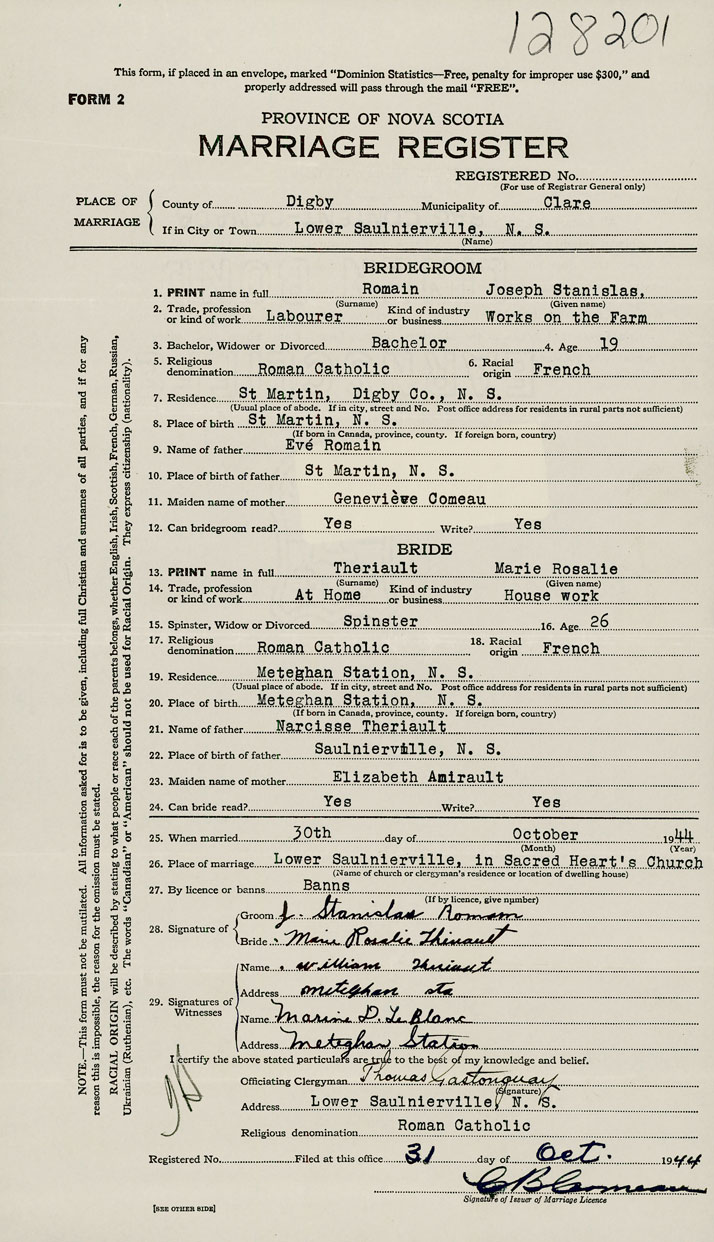 128201
This form, if placed in an envelope, marked "Dominion Statistics—Free, penalty for improper use $300," and
properly addressed will pass through the mail "FREE".
FORM 2
PROVINCE OF NOVA SCOTIA
MARRIAGE REGISTER
REGISTERED No.
(For use of Registrar General only)
PLACE OF MARRIAGE
County of Digby Municipality of Clare
If in City or Town Lower Saulnierville, N. S.
(Name)
BRIDEGROOM
1. PRINT name in full Romain Joseph Stanislas,
(Surname) (Given name)
2. Trade, profession or kind of work Labourer Kind of industry or business Works on the Farm
3. Bachelor, Widower or Divorced Bachelor 4. Age 19
5. Religious denomination Roman Catholic 6. Racial origin French
7. Residence St Martin, Digby Co., N. S.
(Usual place of abode. If in city, street and No. Post office address for residents in rural parts not sufficient)
8. Place of birth St Martin, N. S.
(If born in Canada, province, county. If foreign born, country)
9. Name of father Evé Romain
10. Place of birth of father St Martin, N. S.
11. Maiden name of mother Geneviève Comeau
12. Can bridegroom read? Yes Write? Yes
BRIDE
13. PRINT name in full Theriault Marie Rosalie
(Surname) (Given name)
14. Trade, profession or kind of work At Home Kind of industry or business House work
15. Spinster, Widow or Divorced Spinster 16. Age 26
17. Religious denomination Roman Catholic 18. Racial origin French
19. Residence Meteghan Station, N. S.
(Usual place of abode. If in city, street and No. Post office address for residents in rural parts not sufficient)
20. Place of birth Meteghan Station, N. S.
(If born in Canada, province, county. If foreign born, country)
21. Name of father Narcisse Theriault
22. Place of birth of father Saulnierville, N. S.
23. Maiden name of mother Elizabeth Amirault
24. Can bride read? Yes Write? Yes
25. When married 30th day of October 1944
(Month) (Year)
26. Place of marriage Lower Saulnierville, in Sacred Heart's Church
(Name of church or clergyman's residence or location of dwelling house)
27. By licence or banns Banns
(If by licence, give number)
28. Signature of
Groom J. Stanislas Romain
Bride Marie Rosalie Thériault
29. Signatures of Witnesses
Name William Thériault
Address Meteghan Sta
Name Marine D. LeBlanc
Address Meteghan Station
I certify the above stated particulars are true to the best of my knowledge and belief.
Officiating Clergyman Thomas Gastonguay
(Signature)
Address Lower Saulnierville, N. S.
Religious denomination Roman Catholic
Registered No. Filed at this office 31 day of Oct. 1944
C B Comeau
Signature of Issuer of Marriage Licence
[SEE OTHER SIDE]
NOTE.—This form must not be mutilated. All information asked for is to be given, including full Christian and surnames of all parties, and if for any
reason this is impossible, the reason for the omission must be stated.
RACIAL ORIGIN will be described by stating to what people or race each of the parents belongs, whether English, Irish, Scottish, French, German, Russian,
Ukrainian (Ruthenian), etc. The words "Canadian" or "American" should not be used for Racial Origin. They express citizenship (nationality).